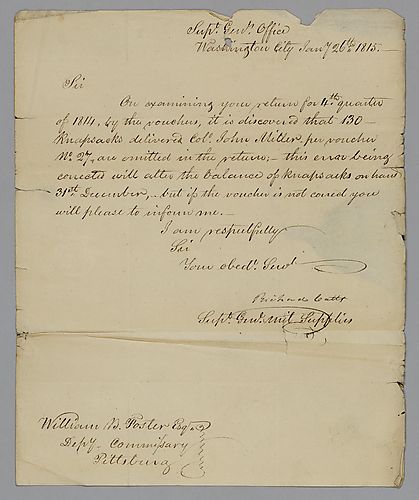 Supt. Genl. Office
Washington City Jany 26th 1815.
Sir
On examining your return for 4th quarter
of 1814, by the vouchers, it is discovered that 130
Knapsacks delivered Col. John Miller, per voucher
No. 27, are omitted in the return; – this error being
corrected will alter the balance of knapsacks on hand
31st December, – but if the voucher is not correct you
will please to inform me. –
I am respectfully
Sir
Your obedt. Servt.
Richard Cutts
Supt. Genl. Mil. Supplies
William B. Foster Esqr.
Depy. Commissary
Pittsburg